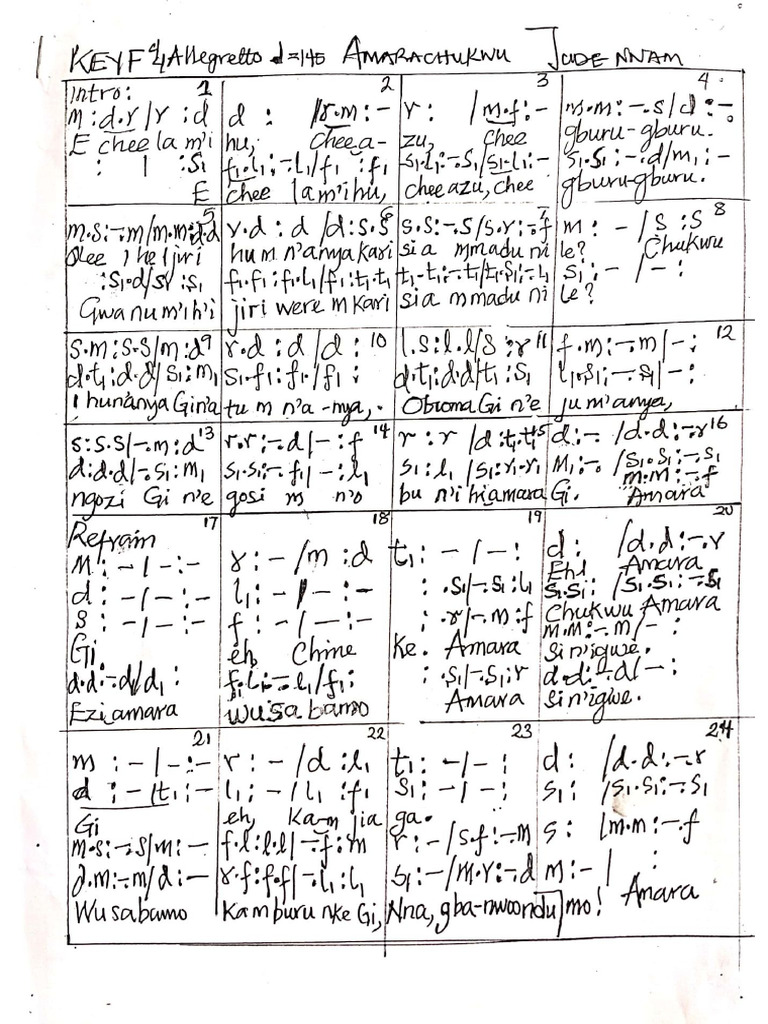 KEY F 4/4 Allegretto d=145 AMARACHUKWU JUDE NNAM
Intro: 1
m : d.r / r : d
E chee la m'i
: | : s₁
E
2
d : / r.m : -
hu, Chee a-
f₁.l₁ : -.l₁ / f₁ : f₁
chee la m'ihu,
3
r : / m.f : -
zu, chee
s₁.l₁ : -.s₁ / s₁.l₁ : -
chee azu, chee
4
m.m : -.s / d : -.
gburu-gburu.
s₁.s₁ : -.d / m₁ : -
gburu-gburu.
5
m.s : -.m / m.m : d.d
Olee ihe I jiri
: s₁.d / s₁ : s₁
Gwa nu m'ih'i
6
r.d : d / d : s.s
hu m n'anya kari
f₁.f₁ : f₁.l₁ / f₁ : t₁.t₁
jiri were m kari
7
s.s : -.s / s.r : -.f
sia mmadu ni
t₁.t₁ : -.t₁ / t₁.s₁ : -.l₁
sia mmadu ni
8
m : - / s : s
le? Chukwu
s₁ : - / - :
le?
9
s.m : s.s / m : d
d.t₁ : d.d / s₁ : m₁
Ihunanya Gin'a
10
r.d : d / d :
s₁.f₁ : f₁ / f₁ :
tu m n'a-nya,
11
l.s : l.l / s : r
d.t₁ : d.d / t₁ : s₁
Obioma Gi n'e
12
f.m : -.m / - :
l₁.s₁ : -.s₁ / - :
ju m'anya,
13
s : s.s / -.m : d
d : d.d / -.s₁ : m₁
ngozi Gi n'e
14
r.r : -.d / - : f
s₁.s₁ : -.f₁ / - : l₁
gosi m n'o
15
r : r / d : t₁.t₁
s₁ : l₁ / s₁ : r₁.r₁
bu n'ihi amara
16
d : - / d.d : -.r
m₁ : -. / s₁.s₁ : -.s₁
m.m : -.f
Gi. Amara
17
Refrain
m : - / - : -
d : - / - : -
s : - / - : -
Gi.
d.d : -.d / d₁ :
Ezi amara
18
r : - / m : d
l₁ : - / - : -
f : - / - : -
eh, Chine
f₁.l₁ : -.l₁ / f₁ :
wusa bamo
19
t₁ : - / - :
: .s₁ / -.s₁ : l₁
: .r / -.m : f
ke. Amara
: .s₁ / -.s₁ : r
Amara
20
d : / d.d : -.r
Eh! Amara
s₁.s₁ : / s₁.s₁ : -.s₁
Chukwu Amara
m.m : -.m / - :
si n'igwe.
d.d : -.d / - :
si n'igwe.
21
m : - / - : -
d : - / t₁ : -
Gi
m.s : -.s / m : -
d.m : -.m / d : -
Wusabamo
22
r : - / d : l₁
l₁ : - / l₁ : f₁
eh, ka-m jia
f.l : l.l / -.f : m
r.f : f.f / -.l₁ : l₁
Kamburu nke Gi,
23
t₁ : - / - :
s₁ : - / - :
ga.
r : - / s.f : -.m
s₁ : - / m.r : -.d
Nna, gba-nwoondu
24
d : / d.d : -.r
s₁ : / s₁.s₁ : -.s₁
s : / m.m : -.f
m : - / :
mo! Amara